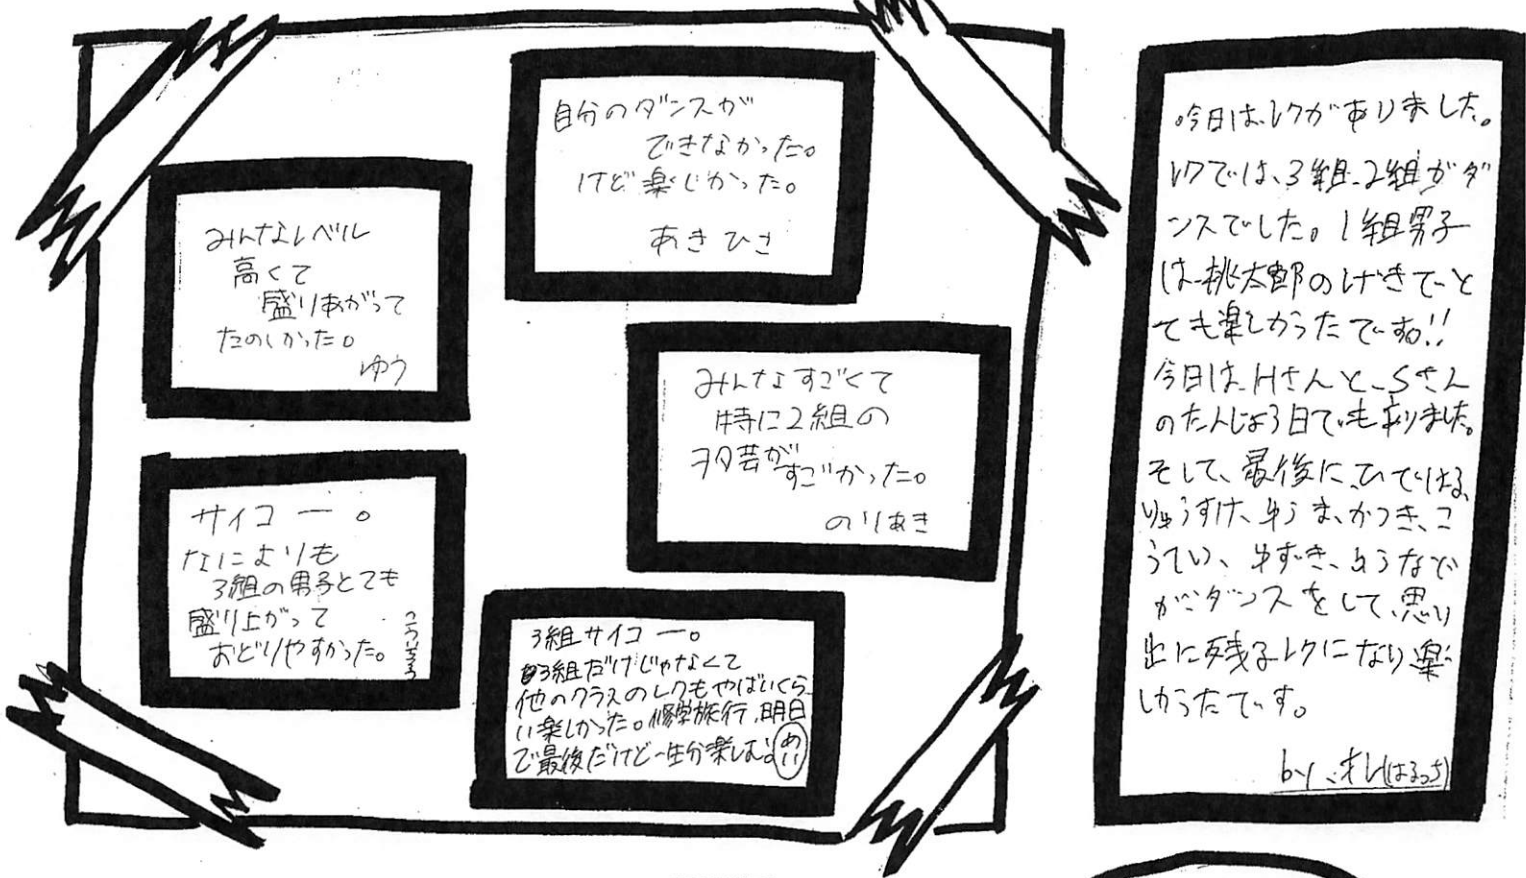 自分のダンスが
できなかった。
けど楽しかった。
あきひさ
みんなレベル
高くて
盛りあがって
たのしかった。
ゆう
みんなすごくて
特に2組の
ヲタ芸が
すごかった。
のりあき
サイコー。
なによりも
3組の男子とても
盛り上がって
おどりやすかった。
3組サイコー。
3組だけじゃなくて
他のクラスのレクもやばいくら
い楽しかった。修学旅行、明日
で最後だけど一生分楽しむ。
めい
今日はレクがありました。
レクでは、3組、2組がダ
ンスでした。1組男子
は桃太郎のげきでと
ても楽しかったです。!!
今日は、HさんとSさん
のたんじょう日でも有りました。
そして、最後に、ひではる、
りゅうすけ、ゆうま、かつき、こ
うてい、ゆずき、ゆうなで
がダンスをして、思い
出に残るレクになり楽
しかったです。
by オレ(はるっち)